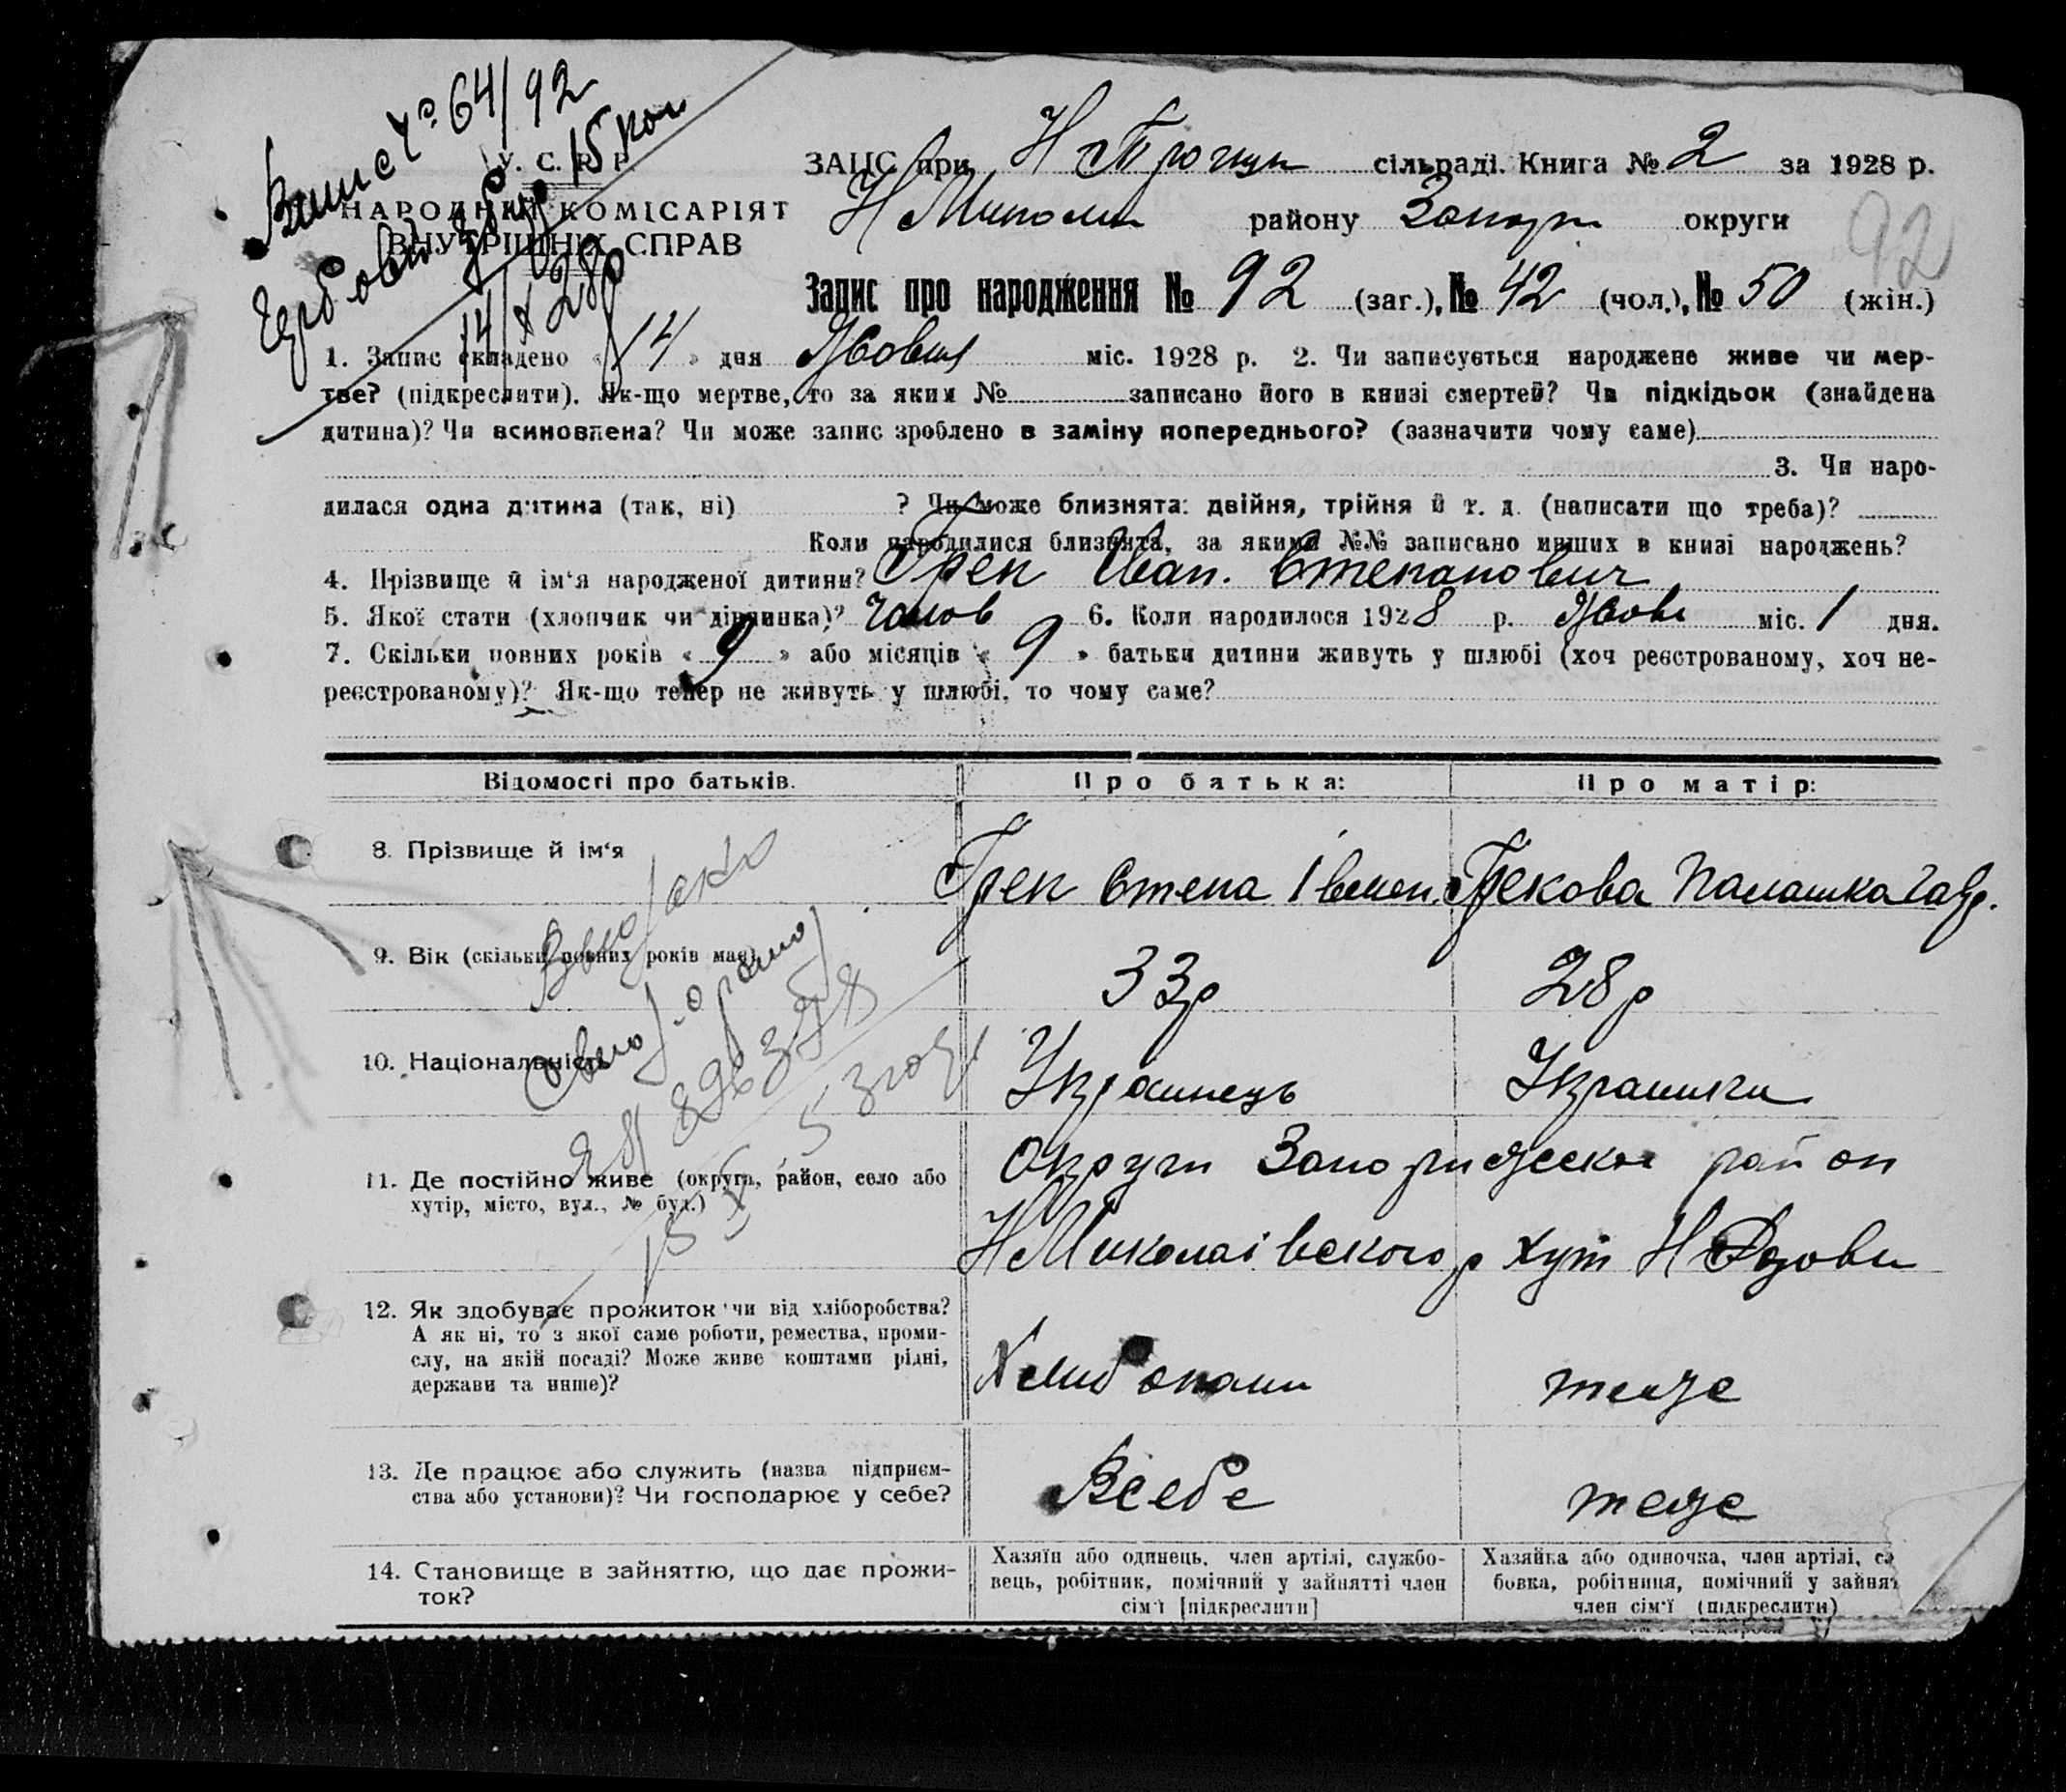 Випис № 64/92
15 коп
14/X 28р
У. С. Р. Р.
НАРОДНИЙ КОМІСАРІЯТ
ВНУТРІШНІХ СПРАВ
ЗАПС при Н Троицк сільраді. Книга № 2 за 1928 р.
Н Микол району Запор округи
92
Запис про народження № 92 (заг.), № 42 (чол.), № 50 (жін.)
1. Запис складено « 14 » дня Жовтня міс. 1928 р. 2. Чи записується народжене живе чи мер-
тве? (підкреслити). Як-що мертве, то за яким № записано його в книзі смертей? Чи підкідьок (знайдена
дитина)? Чи всиновлена? Чи може запис зроблено в заміну попереднього? (зазначити чому саме)
3. Чи наро-
дилася одна дитина (так, ні) ? Чи може близнята: двійня, трійня й т. д. (написати що треба)?
Коли народилися близнята, за якими №№ записано инших в книзі народжень?
4. Прізвище й ім'я народженої дитини? Грек Иван. Степанович
5. Якої стати (хлопчик чи дівчинка)? чолов 6. Коли народилося 1928 р. Жовт міс. 1 дня.
7. Скільки повних років « 9 » або місяців « 9 » батьки дитини живуть у шлюбі (хоч реєстрованому, хоч не-
реєстрованому)? Як-що тепер не живуть у шлюбі, то чому саме?
Відомості про батьків. Про батька: Про матір:
8. Прізвище й ім'я
Грек Степа Грекова Палашка Гавр.
9. Вік (скільки повних років має)
33р 28р
10. Національність
Українець Украинка
11. Де постійно живе (округа, район, село або
хутір, місто, вул., № буд.)
Округи район
НМиколаівского р хут Н
12. Як здобуває прожиток чи від хліборобства?
А як ні, то з якої саме роботи, ремества, проми-
слу, на якій посаді? Може живе коштами рідні,
держави та инше)?
теже
13. Де працює або служить (назва підприєм-
ства або установи)? Чи господарює у себе?
Всебе теже
14. Становище в зайняттю, що дає прожи-
ток?
Хазяїн або одинець, член артілі, службо-
вець, робітник, помічний у зайнятті член
сім'ї [підкреслити]
Хазяйка або одиночка, член артілі, сл
бовка, робітниця, помічний у зайнят
член сім'ї (підкреслити)